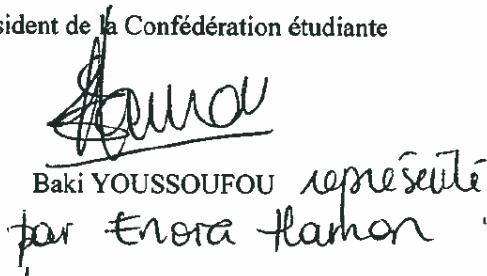 sident de la Confédération étudiante
Hamon
Baki YOUSSOUFOU représenté
par Enora Hamon